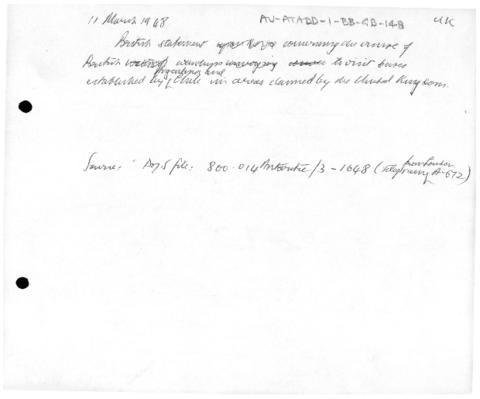 11 March 1948
AU-ATADD-1-BB-GB-148
UK
British statement concerning the cruise of
British warships to visit bases
Argentina and
established by Chile in areas claimed by the United Kingdom.
Source: Dept S file: 800.014 Antarctic/3-1648 (
from London
A-672)